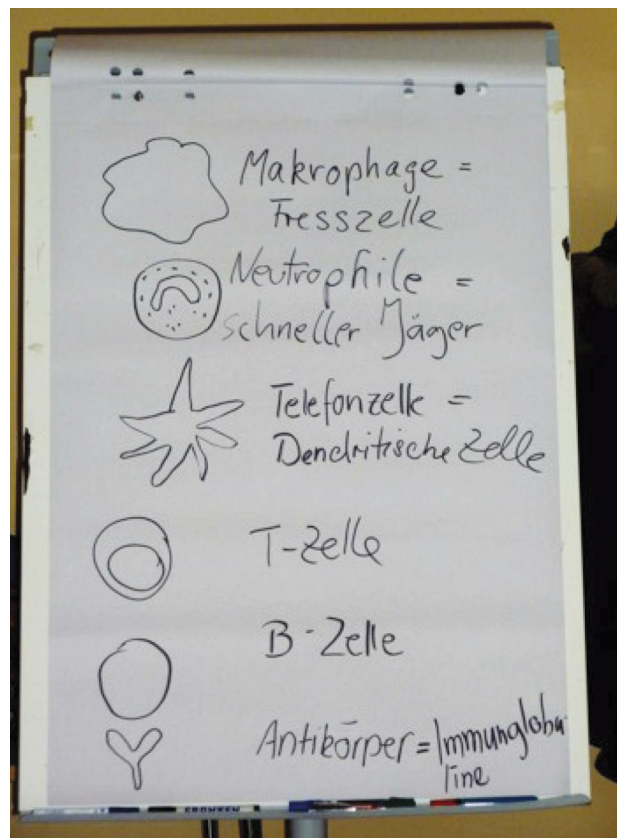 Makrophage =
Fresszelle
Neutrophile =
schneller Jäger
Telefonzelle =
Dendritische Zelle
T-Zelle
B-Zelle
Antikörper = Immunglobu-
line